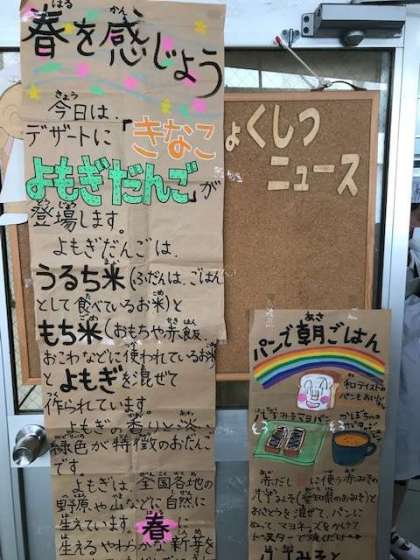 春を感じよう
今日は、
デザートに「きなこ
よもぎだんご」が
登場します。
よもぎだんごは、
うるち米(ふだんは、ごはん
として食べているお米)と
もち米(おもちや赤飯、
おこわなどに使われているお米)
とよもぎを混ぜて
作られています。
よもぎの香りと淡い
緑色が特徴のおだんご
です。
よもぎは、全国各地の
野原や山などに自然に
生えています。春に
生えるやわらかな新芽を
ょくしつ
ニュース
パンで朝ごはん
和テイストの
パンもおいしい
赤だしに使う赤みその
(愛知県のおみそ)と
おさとうを混ぜて、パンに
ぬって、マヨネーズをかけて
トースターで焼くだけ